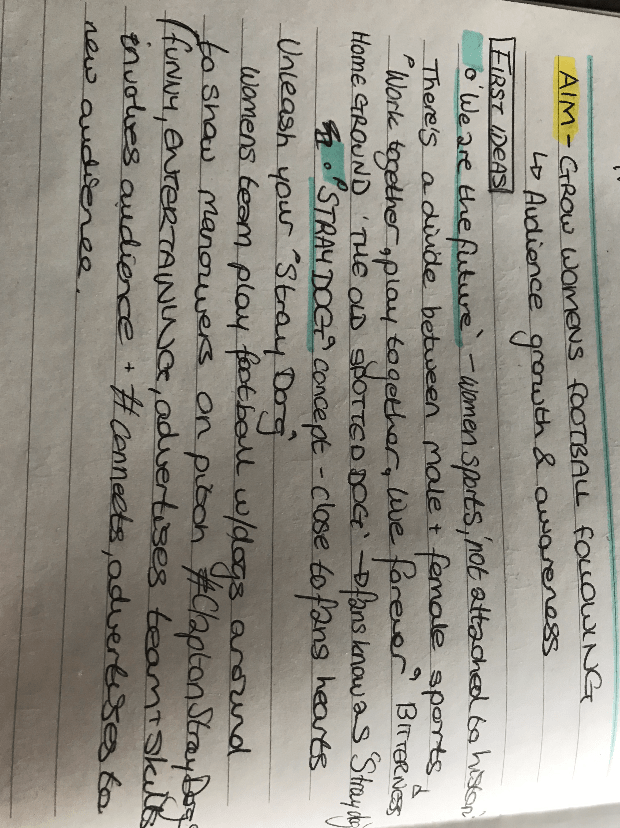 AIM - GROW WOMENS FOOTBALL FOLLOWING
↳ Audience growth & awareness
FIRST IDEAS
'We are the future' - women sports, 'not attached to histori
There's a divide between male + female sports &
"Work together, play together, live forever" BITTERNESS
HOME GROUND 'THE OLD SPOTTED DOG' → fans know as 'Stray do
"STRAY DOG" concept - close to fans hearts
Unleash your "Stray Dog"
Womens team play football w/dogs around
to show manouvers on pitch #ClaptonStrayDog
(funny, ENTERTAINING, advertises team + skills
involves audience + # connects, advertises to
new audience.